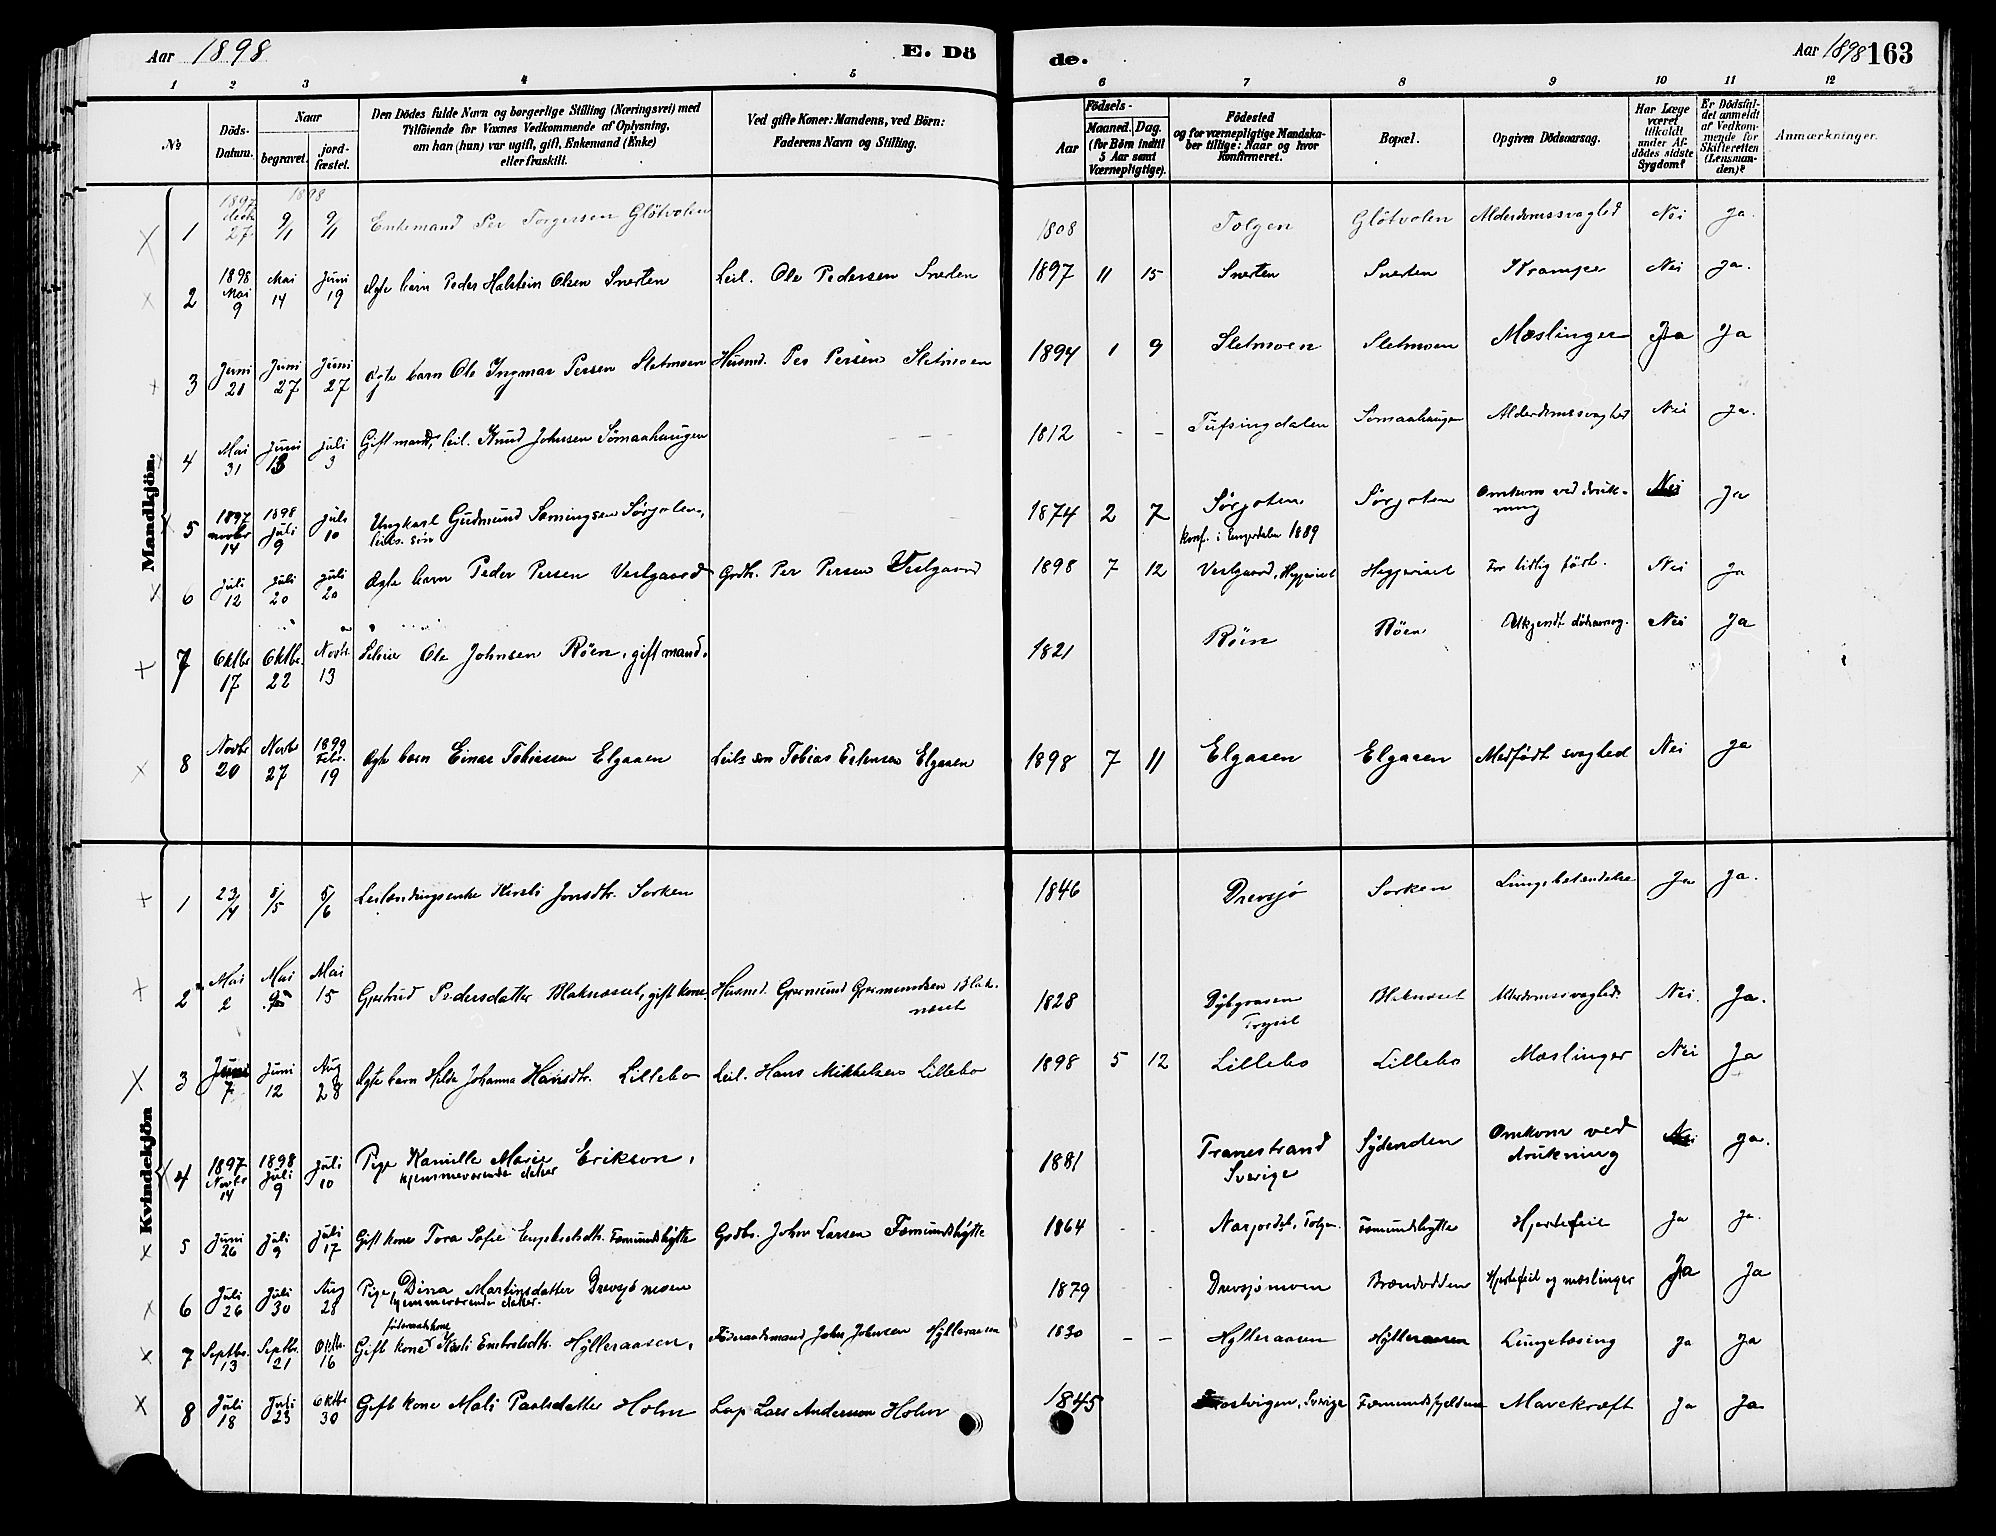 Aar 1898 E. Dö de. Aar 1898 163
1 2 3 4 5 6 7 8 9 10 11 12
No
Döds-Datum.
Naar
begravet.
jord-fæstet.
Den Dödes fulde Navn og borgerlige Stilling (Næringsvei) med
Tilföiende for Voxnes Vedkommende af Oplysning,
om han (hun) var ugift, gift, Enkemand (Enke)
eller fraskilt.
Ved gifte Koner: Mandens, ved Börn:
Faderens Navn og Stilling.
Födsels-
Aar
Maaned. Dag.
(for Börn indtil
5 Aar samt
Værnepligtige).
Födested
og for værnepligtige Mandska-
ber tillige: Naar og hvor
Konfirmeret.
Bopæl.
Opgiven Dödsaarsag.
Har Læge
været
tilkaldt
under Af-
dödes sidste
Sygdom?
Er Dödsfal-
det anmeldt
af Vedkom-
mende for
Skifteretten
(Lensman-
den)?
Anmærkninger.
Mandkjön.
1 1897 27 1898 9/1 9/1 Enkemand Per Torgersen Glötvolen 1808 Tolgen Glötvolen Alderdomssvaghed Nei Ja.
2 1898 Mai 9 Mai 14 Juni 19 Ægte barn Peder Halstein Olsen Snerten Leil. Ole Pedersen Snerten 1897 11 15 Snerten Snerten Krampe Nei Ja.
3 Juni 21 Juni 27 Juni 27 Ægte barn Ole Ingmar Persen Sletmoen Husmd. Per Persen Sletmoen 1894 1 9 Sletmoen Sletmoen Mæslinger Ja Ja
4 Mai 31 Juni 13 Juli 3 Gift mand, leil. Knud Johnsen Sömaahaugen 1812 - - Tufsingdalen Sömaahaugen Alderdomssvaghed Nei Ja.
5 1897 novbr 14 1898 Juli 9 Juli 10 Ungkarl Gudmund Sæmingsen Sörjoten,
leils. sön 1874 2 7 Sörjoten
konf. i Engerdalen 1889 Sörjoten Omkom ved druk-
ning Nei Ja
6 Juli 12 Juli 20 Juli 20 Ægte barn Peder Persen Vestgaard Gaardbr. Per Persen Vestgaard 1898 7 12 Vestgaard, Heggeriset Heggeriset For tidlig födt. Nei Ja
7 Oktbr 17 Oktbr. 22 Novbr. 13 Ole Johnsen Röen, gift mand. 1821 Röen Röen Ukjendt dödsaarsag. Nei Ja
8 Novbr 20 Novbr 27 1899 Febr. 19 Ægte barn Einar Tobiassen Elgaaen Leils sön Tobias Estensen Elgaaen 1898 7 11 Elgaaen Elgaaen Medfödt svaghed Nei Ja
Kvindekjön
1 23/4 8/5 5/6 Leilændingsenke Kirsti Jonsdtr. Sorken 1846 Drevsjö Sorken Lungebetændelse Ja Ja.
2 Mai 2 Mai Mai 15 Gjertrud Pedersdatter Blaknæsset, gift kone. Husmd. Gjermund Gjermundsen Blak-
næset 1828 Trysil Blaknæset Alderdomssvaghed. Nei. Ja.
3 Juni 7 Juni 12 Aug 28 Ægte barn Hilda Johanna Hansdtr. Lillebo Leil. Hans Mikkelsen Lillebo 1898 5 12 Lillebo Lillebo Mæslinger Nei Ja
4 1897 Novbr 14 1898 Juli 9 Juli 10 Pige Kamille Marie Erikson,
hjemmeværende datter 1881 Transtrand
Sverige Sydenden Omkom ved
drukning Nei Ja.
5 Juni 26 Juli 9 Juli 17 Gift kone Tora Sofie Engebretsdtr. Fæmundshytte Gdbr. John Larsen Fæmundshytte 1864 - - Narjordet, Tolgen. Fæmundshytte Hjertefeil Ja Ja.
6 Juli 26 Juli 30 Aug 28 Pige Dina Martinsdatter Drevsjömoen
hjemmeværende datter. 1879 - - Drevsjömoen Brændodden Hjertefeil og mæslinger Ja Ja
föderaadskone
7 Septbr. 13 Septbr. 21 Oktbr. 16 Gift kone Kari Embretsdtr. Hylleraasen, Föderaadsmand John Johnsen Hylleraasen 1830 - - Hylleraasen Hylleraasen Lungetæring Ja Ja
8 Juli 18 Juli 23 Oktbr 30 Gift kone Mali Paalsdatter Holm Lap Lars Anderson Holm 1845 Sverige Fæmundsfjeldene Mavekræft Ja Ja